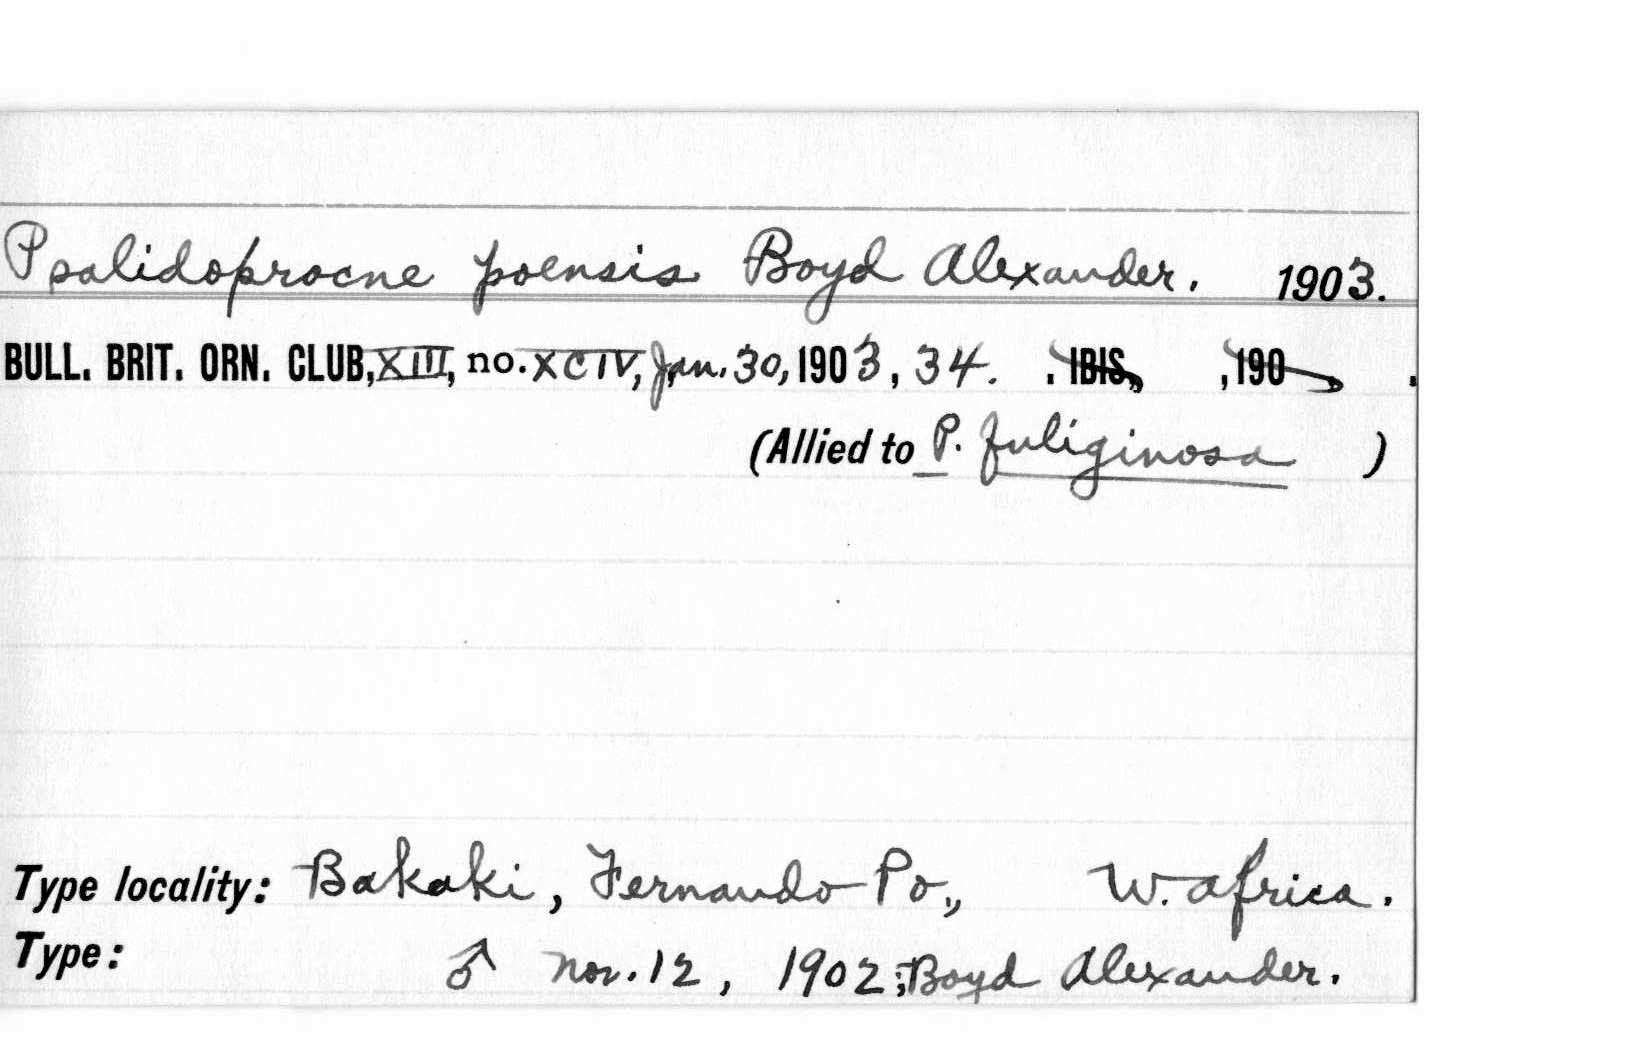 Psalidoprocne poensis Boyd Alexander. 1903.
BULL. BRIT. ORN. CLUB, XIII, no. XCIV, Jan. 30, 1903, 34. . IBIS, , 190 .
(Allied to P. fuliginosa )
Type locality: Bakaki, Fernando Po., W. Africa.
Type: ♂ Nov. 12, 1902; Boyd Alexander.